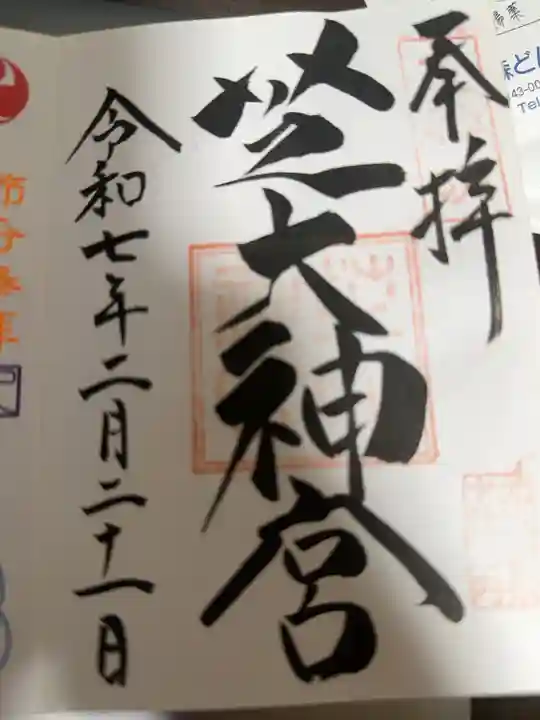 奉拝
芝大神宮
令和七年二月二十一日
節分
Tel
43-00